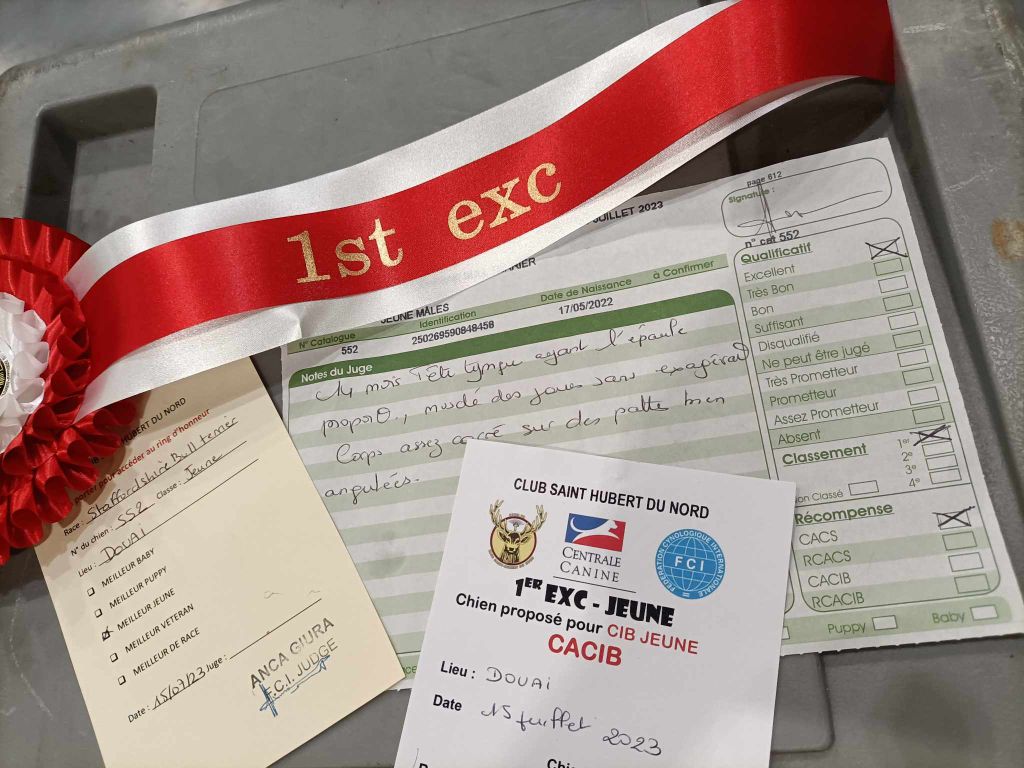 1st exc
JUILLET 2023
JEUNE MÂLES
N° Catalogue
Identification
Date de Naissance
à Confirmer
552
250269590848458
17/05/2022
Notes du Juge
14 mois Tête typée ayant l'épaule
musclé des joues sans
Corps assez carré sur des patte bien
angulées.
page 612
Signature :
n° cat 552
Qualificatif
Excellent
Très Bon
Bon
Suffisant
Disqualifié
Ne peut être jugé
Très Prometteur
Prometteur
Assez Prometteur
Absent
Classement
1er
2e
3e
4e
Non Classé
Récompense
CACS
RCACS
CACIB
RCACIB
Puppy
Baby
HUBERT DU NORD
porter pour accéder au ring d'honneur
Race : Staffordshire Bull terrier
N° du chien : 552 Classe : Jeune
Lieu : DOUAI
MEILLEUR BABY
MEILLEUR PUPPY
MEILLEUR JEUNE
MEILLEUR VETERAN
MEILLEUR DE RACE
Date : 15/07/23 Juge :
ANCA GIURA
F.C.I. JUDGE
CLUB SAINT HUBERT DU NORD
CENTRALE
CANINE
FÉDÉRATION CYNOLOGIQUE INTERNATIONALE
FCI
1ER EXC - JEUNE
Chien proposé pour CIB JEUNE
CACIB
Lieu : DOUAI
Date 15 juillet 2023